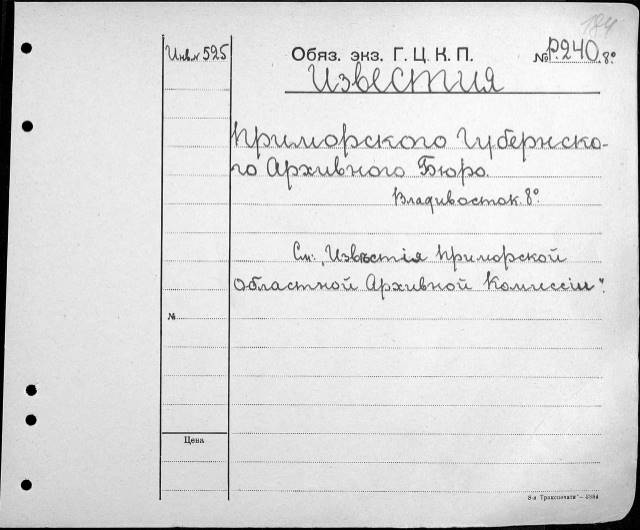 184
Инв.№ 525 Обяз. экз. Г. Ц. К. П. № Р.240. 8º
Известия
Приморского Губернско-
го Архивного Бюро.
Владивосток. 8º.
См: „Извѣстія Приморской
Областной Архивной Комиссіи".
№
Цена